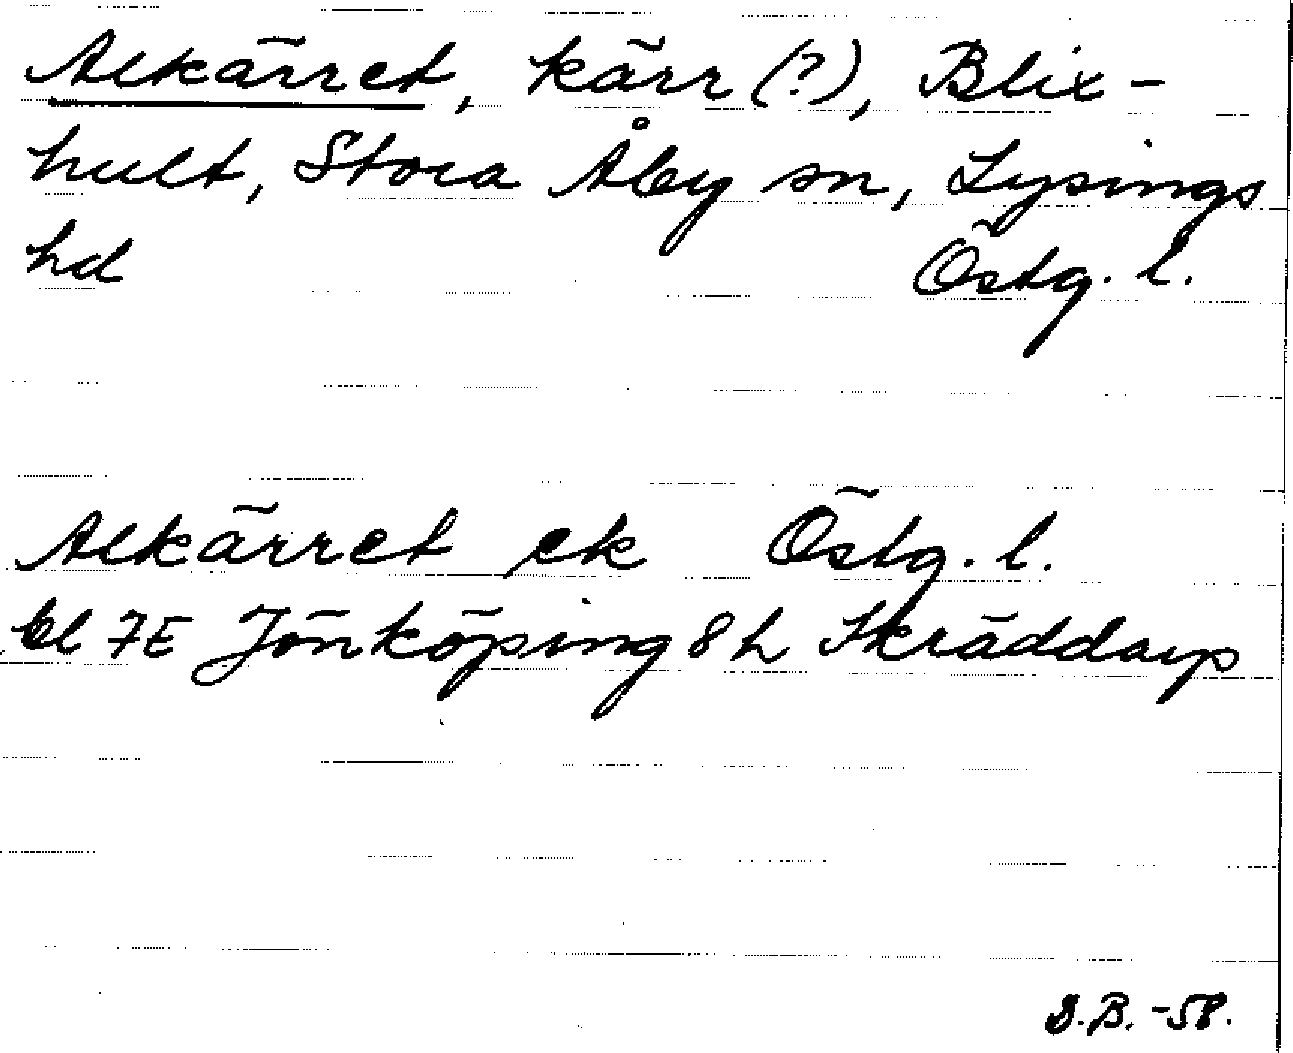 Alkärret, kärr (?), Blix-
hult, Stora Åby sn, Lysings
hd Östg. l.
Alkärret ek Östg. l.
bl 7E Jönköping 8h Skräddarp
S.B. -58.